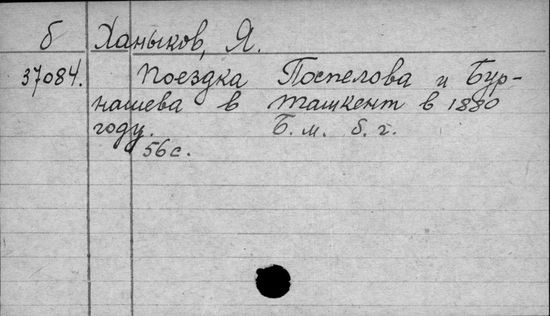 б Ханыков, Я.
37084. Поездка Поспелова и Бур-
нашева в Ташкент в 1880
году. Б. м. б. г.
56 с.